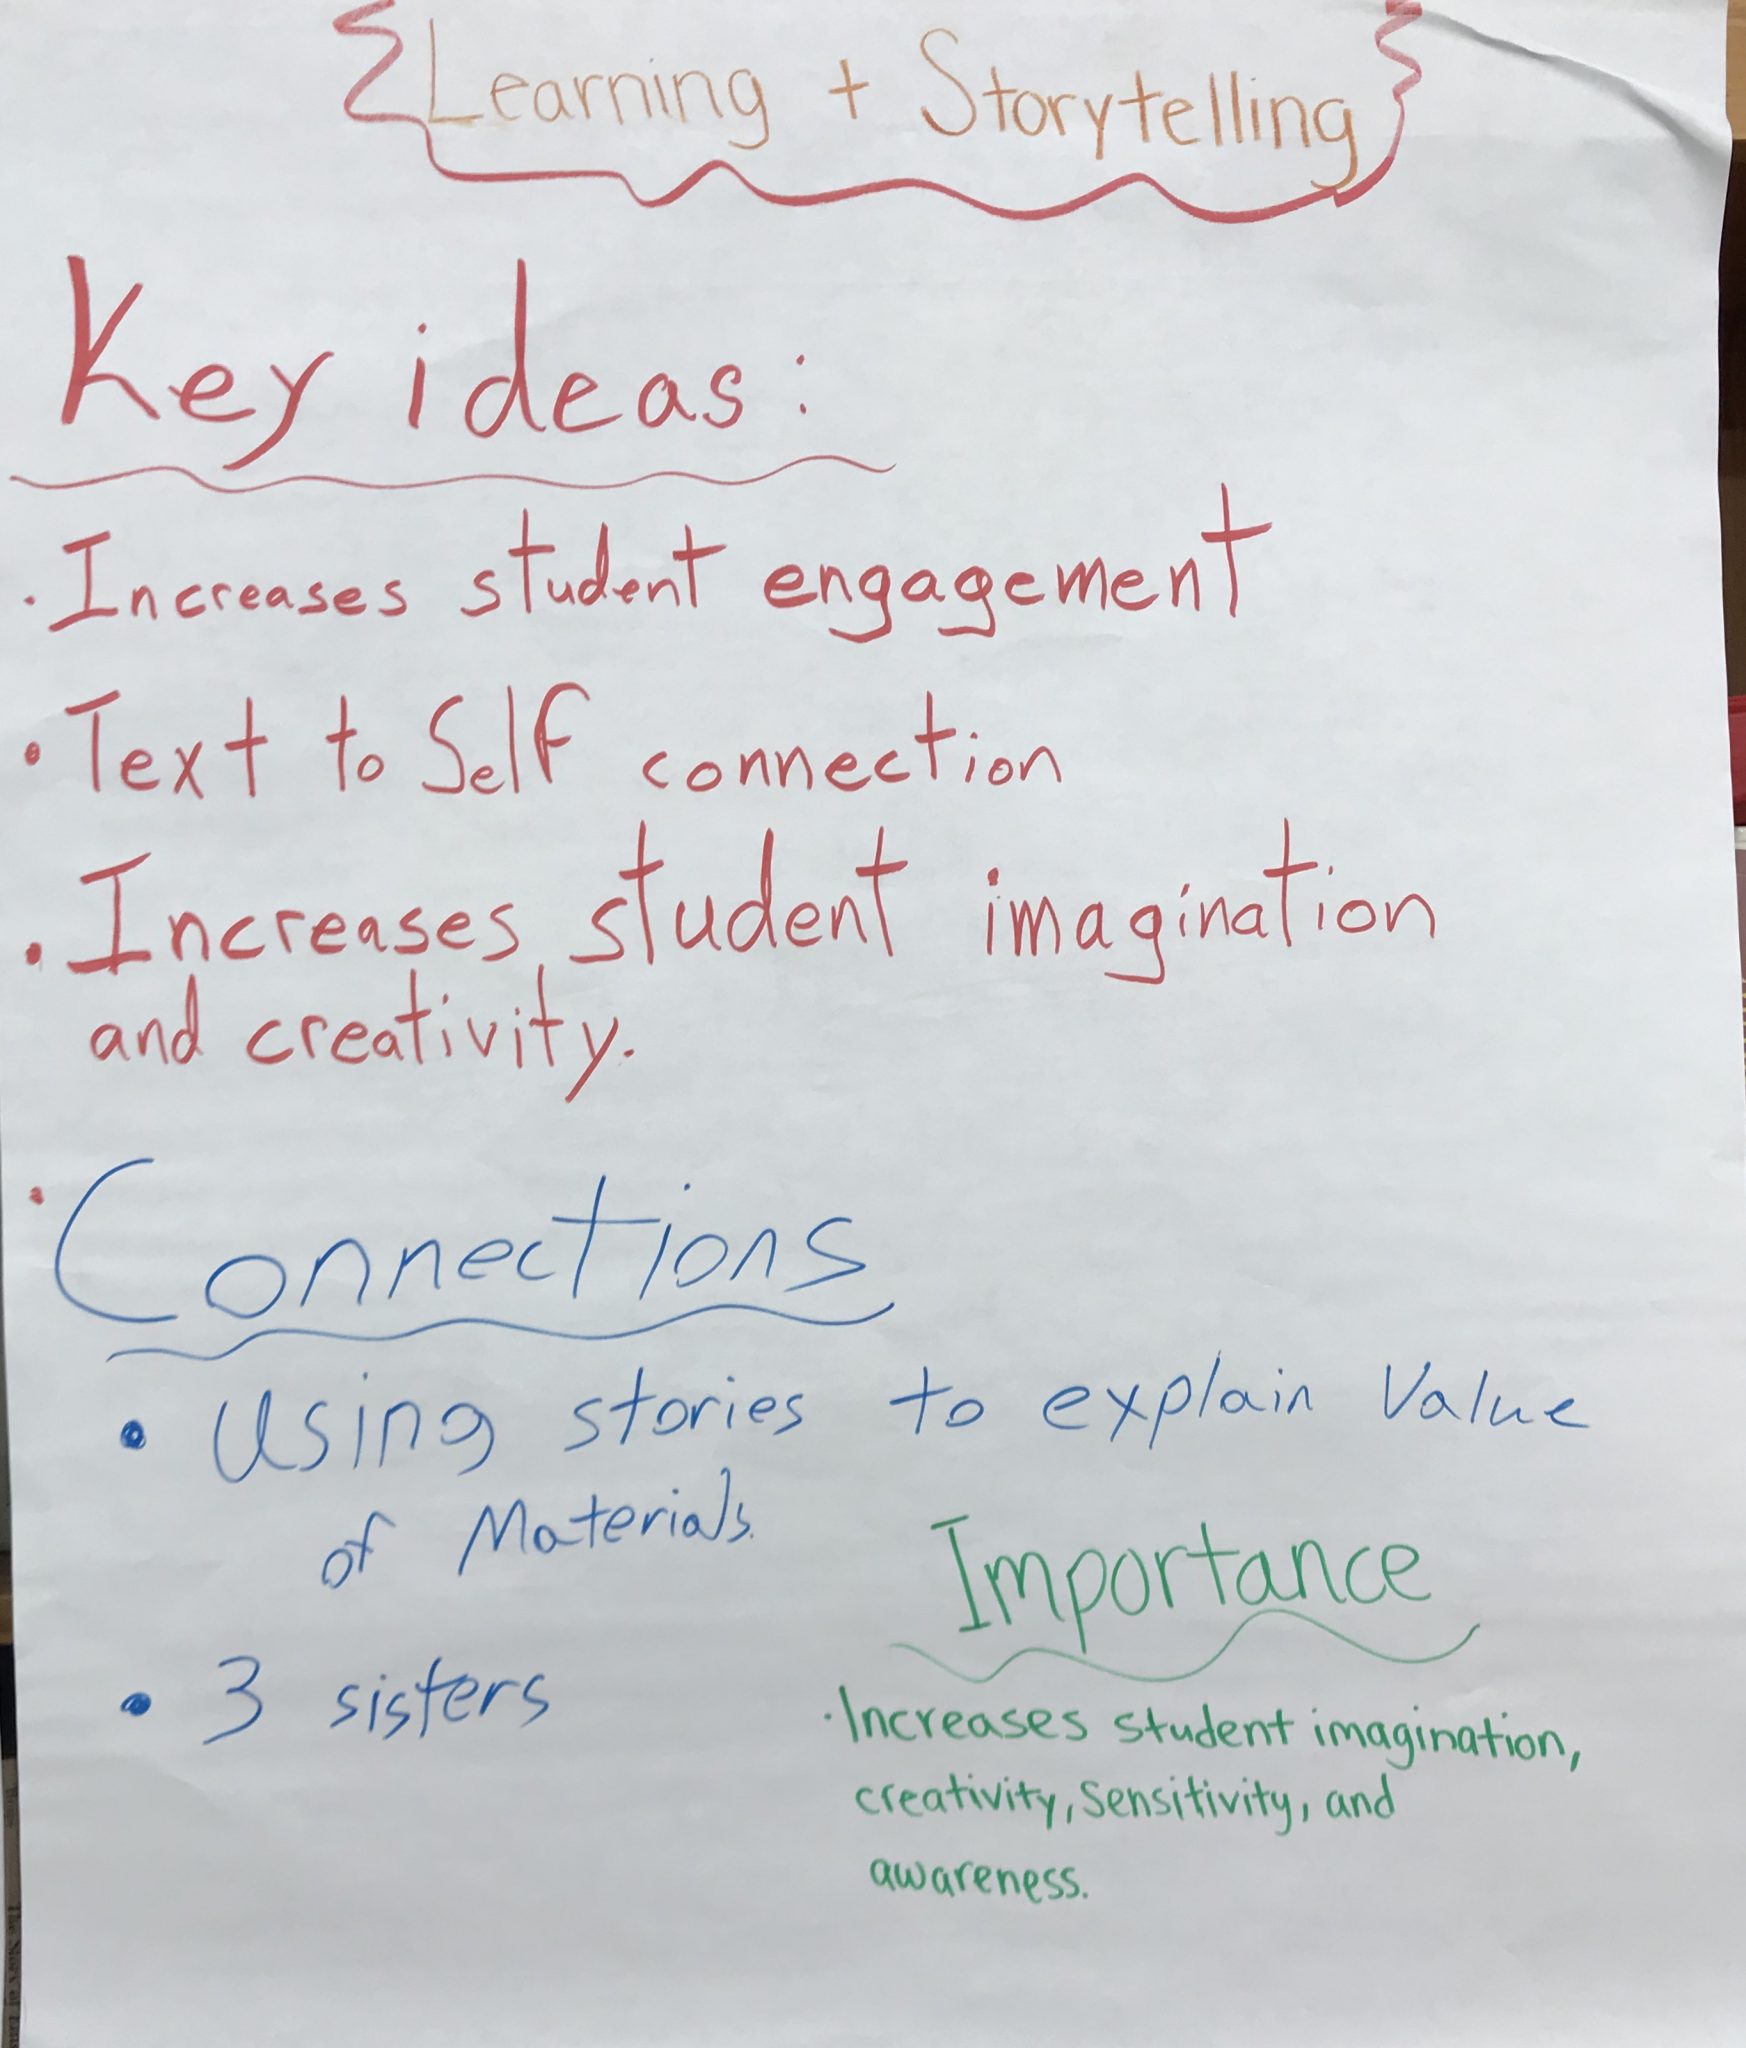 Learning + Storytelling
Key ideas:
· Increases student engagement
· Text to Self connection
· Increases student imagination
and creativity.
· Connections
• Using stories to explain Value
of Materials.
Importance
• 3 sisters
· Increases student imagination,
creativity, Sensitivity, and
awareness.